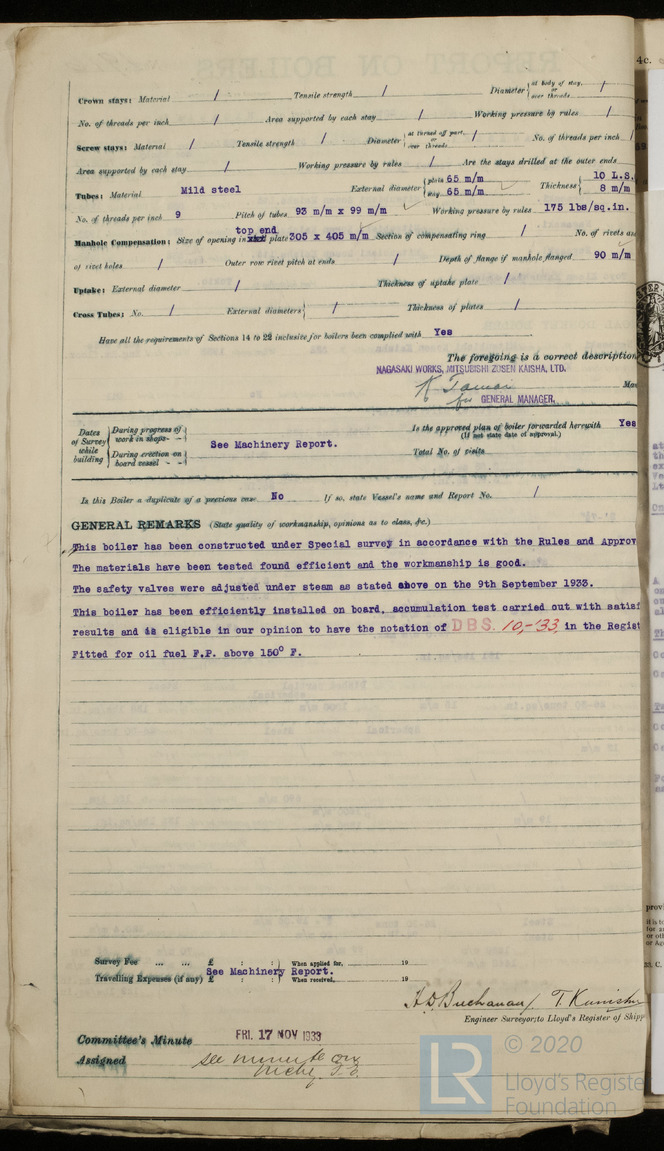 Crown stays: Material / Tensile strength / Diameter { at body of stay, or over threads. /
No. of threads per inch / Area supported by each stay / Working pressure by rules /
Screw stays: Material / Tensile strength / Diameter { at turned off part, or over threads. / No. of threads per inch /
Area supported by each stay / Working pressure by rules / Are the stays drilled at the outer ends
Tubes: Material Mild steel External diameter { plain 65 m/m stay 65 m/m Thickness { 10 L.S. 8 m/m
No. of threads per inch 9 Pitch of tubes 93 m/m x 99 m/m Working pressure by rules 175 lbs/sq.in.
top end
Manhole Compensation: Size of opening in plate 305 x 405 m/m Section of compensating ring / No. of rivets
of rivet holes / Outer row rivet pitch at ends / Depth of flange if manhole flanged 90 m/m
Uptake: External diameter / Thickness of uptake plate /
Cross Tubes: No. / External diameters { / Thickness of plates /
Have all the requirements of Sections 14 to 22 inclusive for boilers been complied with Yes
The foregoing is a correct description
NAGASAKI WORKS, MITSUBISHI ZOSEN KAISHA, LTD.
for GENERAL MANAGER.
Dates of Survey while building { During progress of work in shops - - } { During erection on board vessel - - - } See Machinery Report.
Is the approved plan of boiler forwarded herewith Yes
(If not state date of approval.)
Total No. of visits
Is this Boiler a duplicate of a previous case No If so, state Vessel's name and Report No. /
GENERAL REMARKS (State quality of workmanship, opinions as to class, &c.)
This boiler has been constructed under Special survey in accordance with the Rules and Approv
The materials have been tested found efficient and the workmanship is good.
The safety valves were adjusted under steam as stated above on the 9th September 1933.
This boiler has been efficiently installed on board, accumulation test carried out with satisf
results and is eligible in our opinion to have the notation of DBS. 10,-33, in the Regist
Fitted for oil fuel F.P. above 150° F.
Survey Fee ... ... £ : : } When applied for, 19
See Machinery Report.
Travelling Expenses (if any) £ : : } When received, 19
H.D. Buchanan / T. Kunish
Engineer Surveyor; to Lloyd's Register of Shipp
Committee's Minute FRI. 17 NOV 1933
Assigned see minute on
LR © 2020
Lloyd's Registe
Foundation